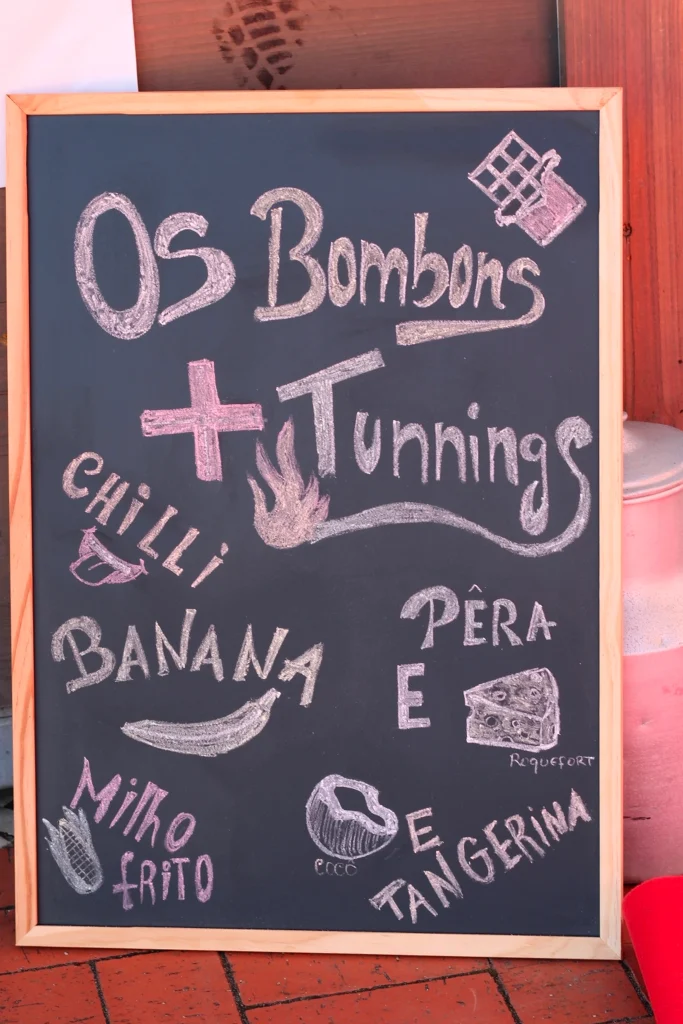 Os Bombons
+ Tunnings
CHiLLi
BANANA
PÊRA
E
ROQUEFORT
Milho
fRiTO
COCO
E
TANGERiNA